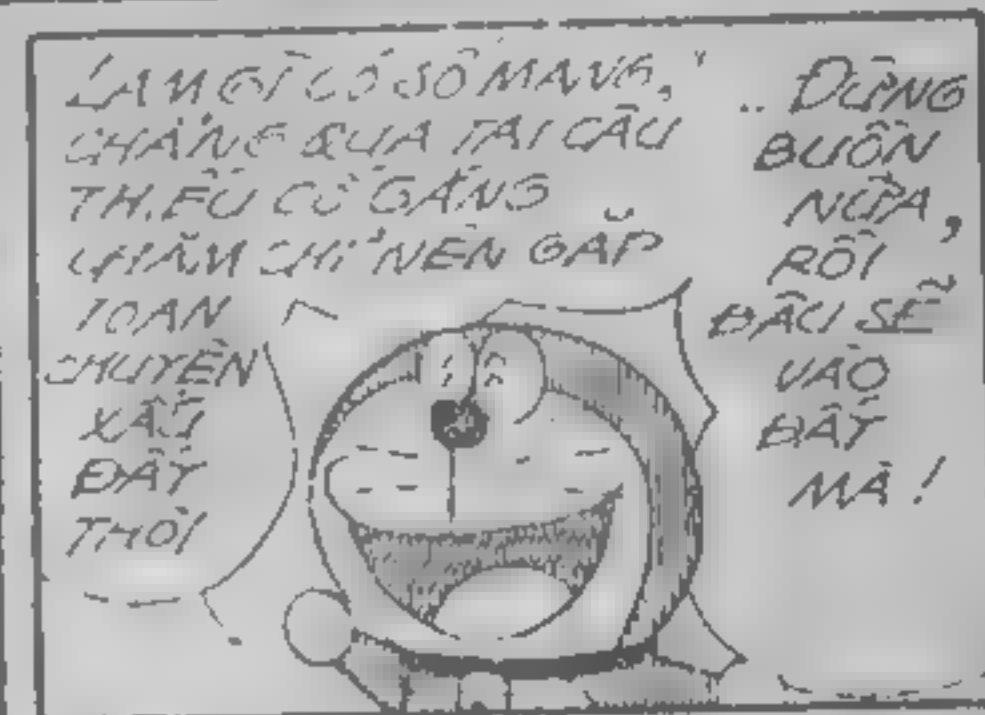 LÀM GÌ CÓ SỐ MẠNG,
CHẲNG QUA TẠI CẬU
THIẾU CỐ GẮNG
CHĂM CHỈ NÊN GẶP
TOÀN
CHUYỆN
XẤU
ĐẤY
THÔI
.. ĐỪNG
BUỒN
NỮA,
RỒI
ĐÂU SẼ
VÀO
ĐẤY
MÀ!